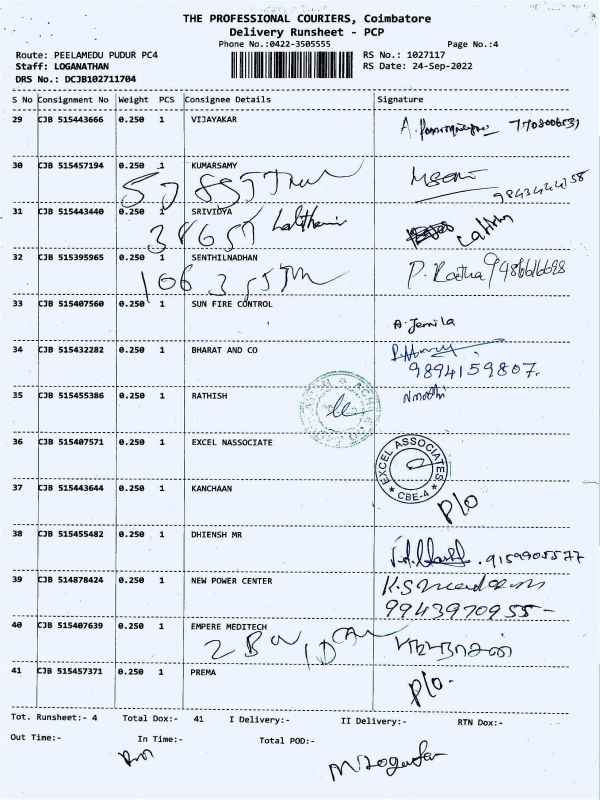 THE PROFESSIONAL COURIERS, Coimbatore
Delivery Runsheet - PCP
Phone No.:0422-3505555 Page No.:4
Route: PEELAMEDU PUDUR PC4 RS No.: 1027117
Staff: LOGANATHAN RS Date: 24-Sep-2022
DRS No.: DCJB102711704
S No Consignment No Weight PCS Consignee Details Signature
29 CJB 515443666 0.250 1 VIJAYAKAR
30 CJB 515457194 0.250 1 KUMARSAMY
31 CJB 515443440 0.250 1 SRIVIDYA
32 CJB 515395965 0.250 1 SENTHILNADHAN
P. Radha 9486616698
33 CJB 515407560 0.250 1 SUN FIRE CONTROL
A. Jemila
34 CJB 515432282 0.250 1 BHARAT AND CO
9894159807.
35 CJB 515455386 0.250 1 RATHISH
36 CJB 515407571 0.250 1 EXCEL NASSOCIATE
EXCEL ASSOCIATES
CBE-4
37 CJB 515443644 0.250 1 KANCHAAN
P/o
38 CJB 515455482 0.250 1 DHIENSH MR
9159905577
39 CJB 514878424 0.250 1 NEW POWER CENTER
9943970955
40 CJB 515407639 0.250 1 EMPERE MEDITECH
41 CJB 515457371 0.250 1 PREMA
P/o.
Tot. Runsheet:- 4 Total Dox:- 41 I Delivery:- II Delivery:- RTN Dox:-
Out Time:- In Time:- Total POD:-